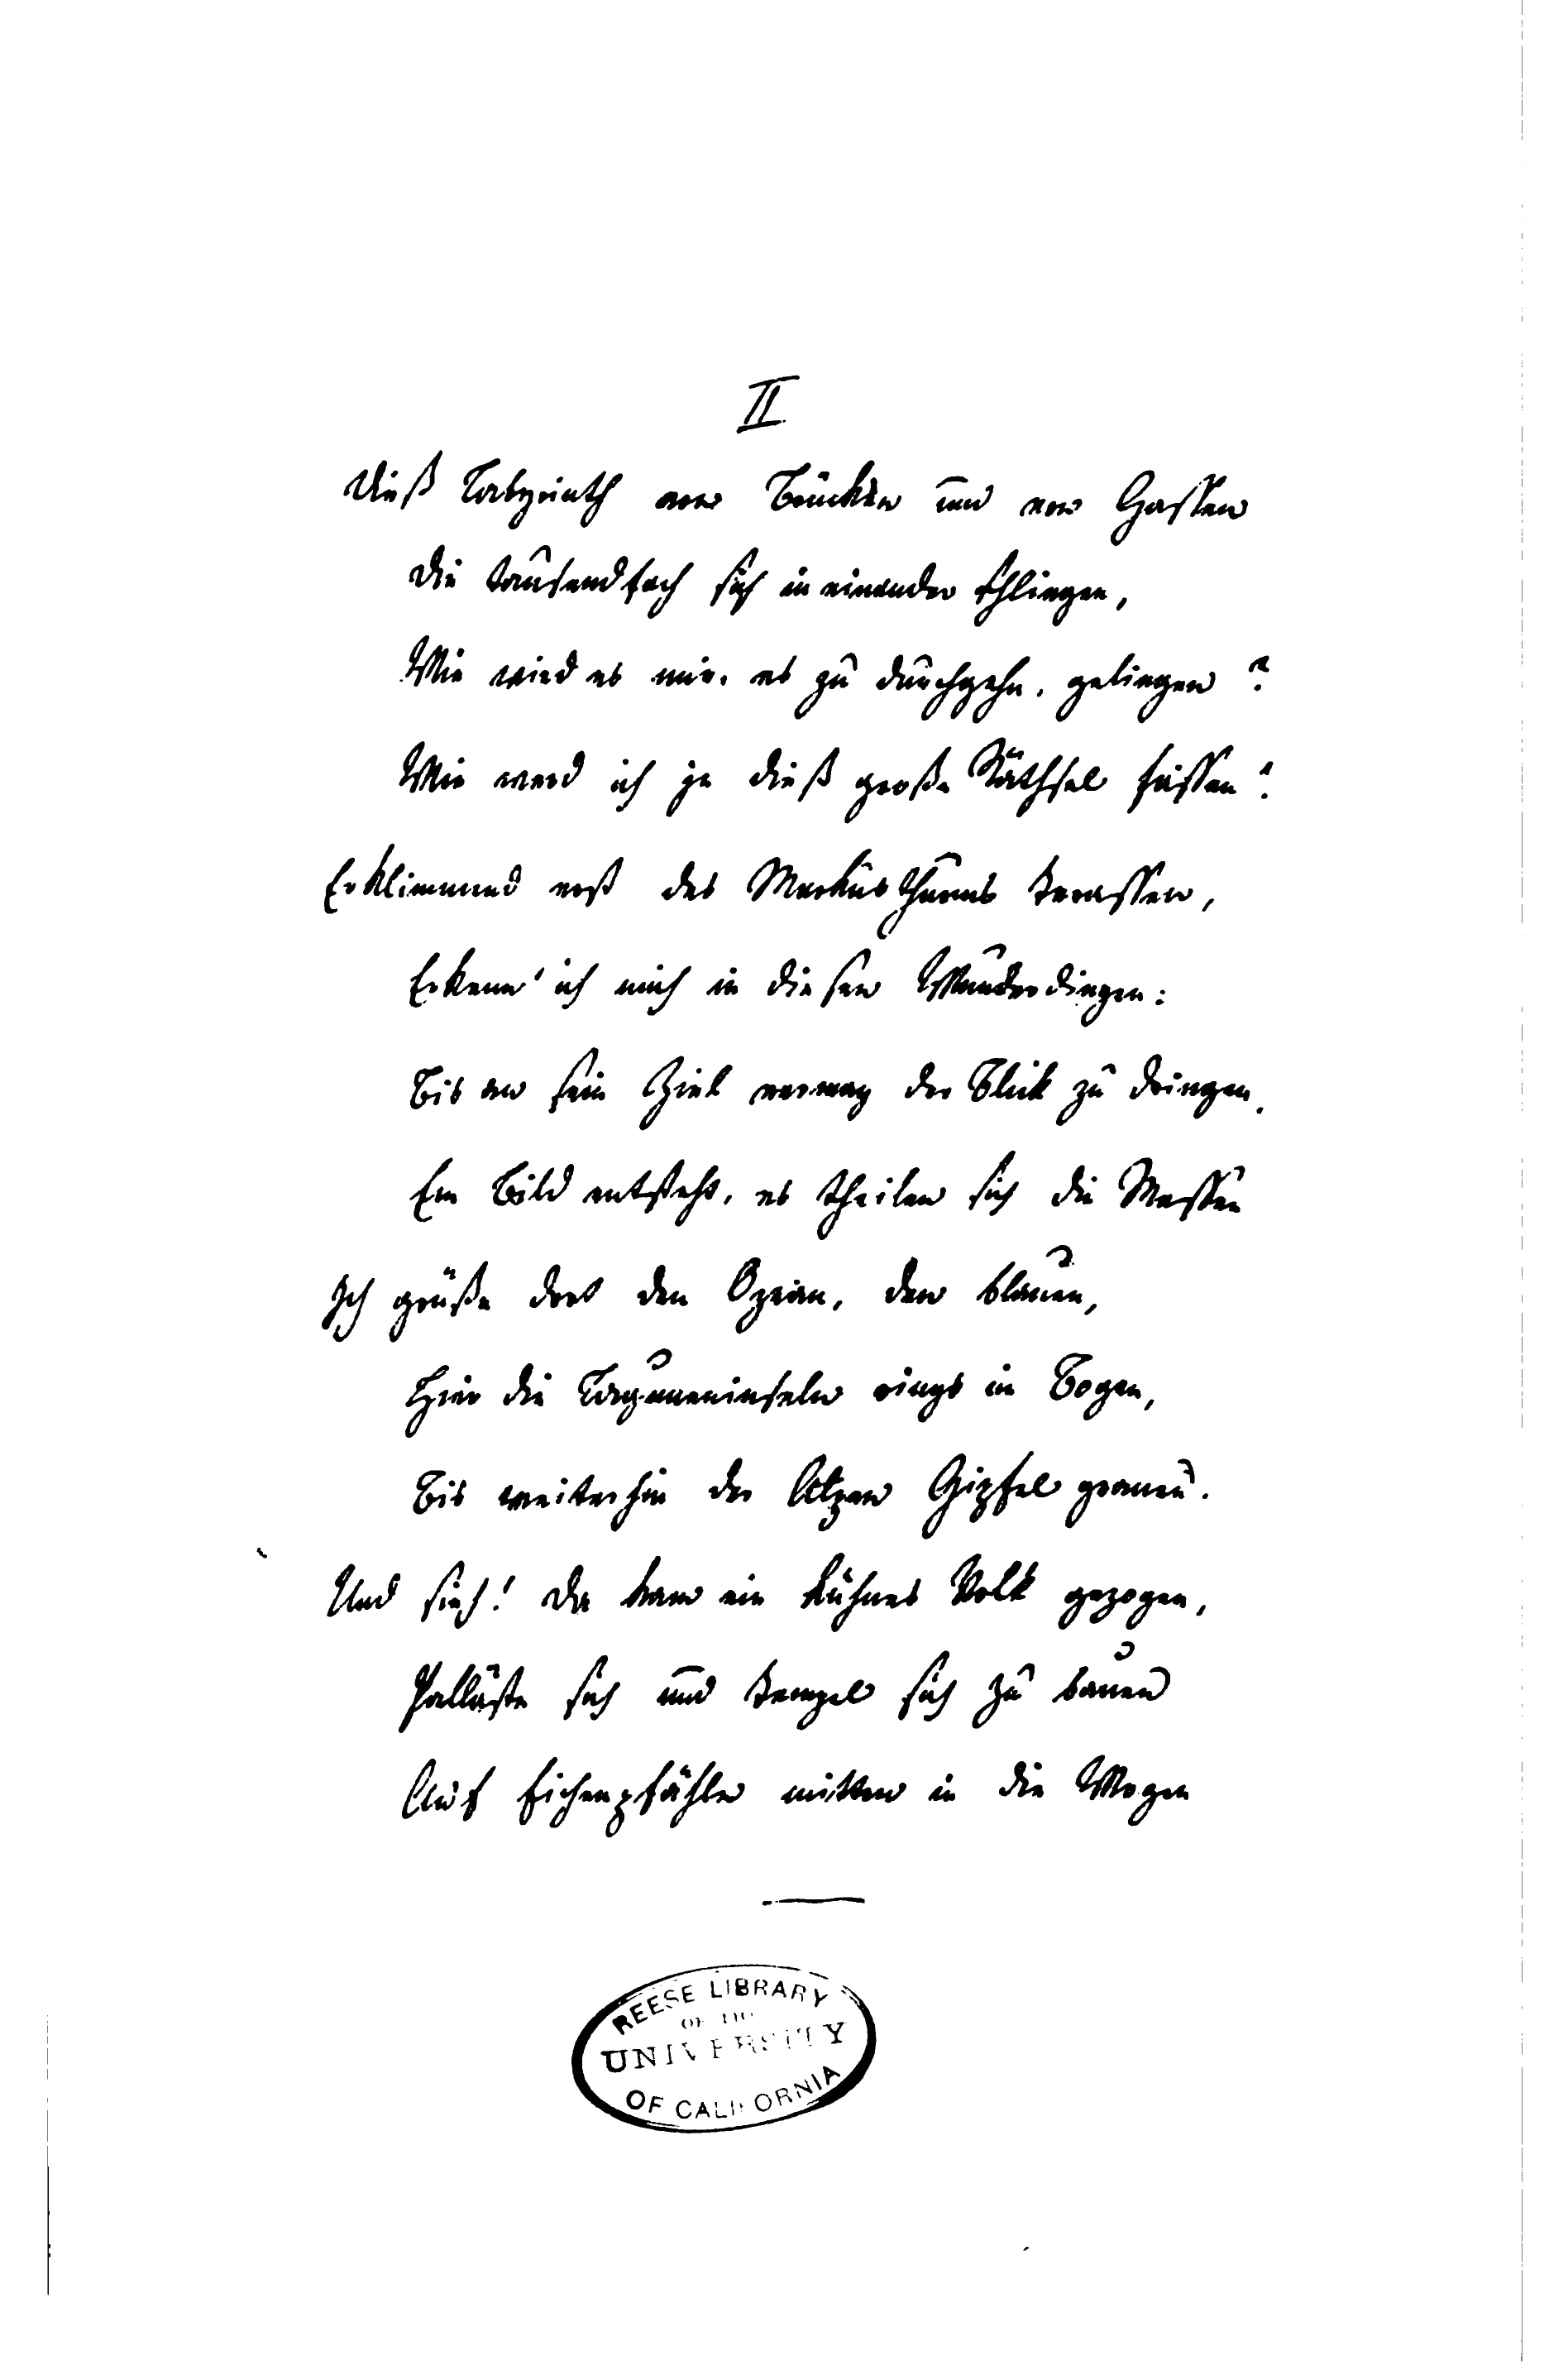 II
Dieß Labyrinth von Brücken und von Gassen
Die tausendfach sich in einander schlingen,
Wie wird es mir, es zu durchgehn, gelingen?
Wie werd ich je dieß große Räthsel fassen?
Erklimmend erst des Markusthurms Terassen,
Erkenn' ich mich in diesen Wunderdingen:
Bis an sein Ziel vermag der Blick zu dringen,
Ein Bild entsteht, es theilen sich die Massen
Ich grüße dort den Ozean, den blauen,
Hier die Laguneninseln rings in Bogen,
Bis weiterhin der Alpen Gipfel grauen.
Und sieh! Da kam ein kühnes Volk gezogen,
Palläste sich und Tempel sich zu bauen
Auf Eichenpfähle mitten in die Wogen
REESE LIBRARY
OF THE
UNIVERSITY
OF CALIFORNIA